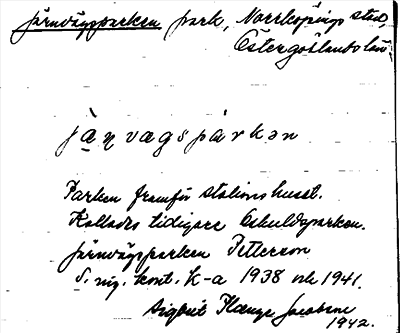 Järnvägsparken park, Norrköpings stad,
Östergötlands län
jä̱ṇvagspárkən
Parken framför stationshuset.
Kallades tidigare Oskuldsparken.
Järnvägsparken Petterson
S. reg. kont. K-a 1938 och 1941.
Sigbrit Plænge Jacobson
1942.